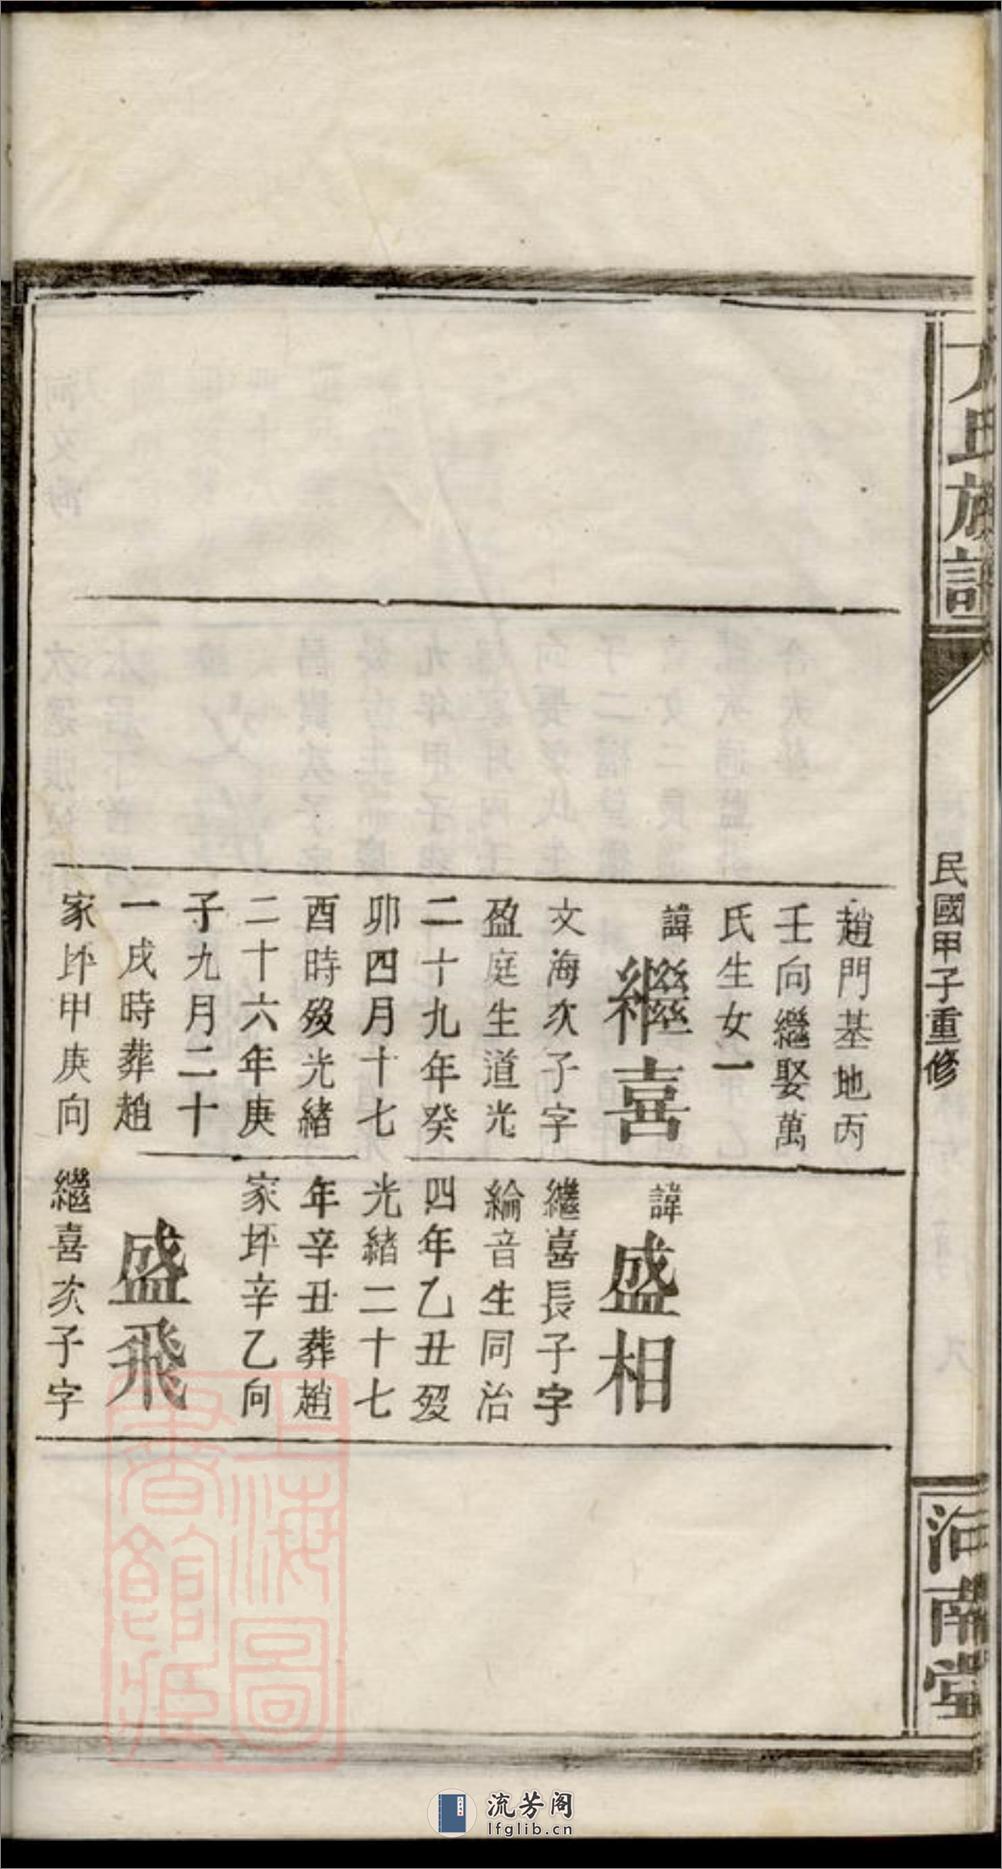 氏族譜
民國甲子重修
南堂
趙門基地丙
壬向繼娶萬
氏生女一
諱
繼喜
文海次子字
盈庭生道光
二十九年癸
卯四月十七
酉時歿光緒
二十六年庚
子九月二十
一戌時葬趙
家坪甲庚向
諱
盛相
繼喜長子字
綸音生同治
四年乙丑歿
光緒二十七
年辛丑葬趙
家坪辛乙向
盛飛
繼喜次子字
上海圖
書館藏
流芳阁
lfglib.cn